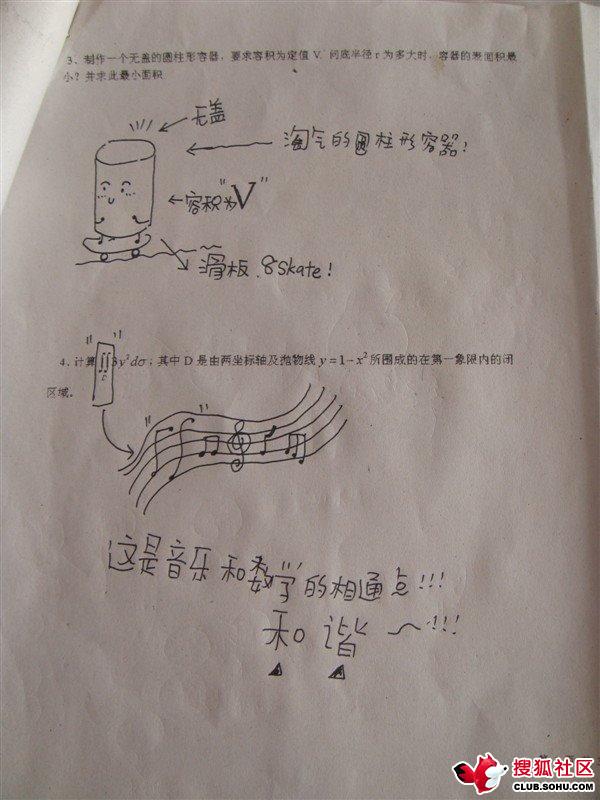 3、制作一个无盖的圆柱形容器，要求容积为定值 V. 问底半径 r 为多大时，容器的表面积最
小？并求此最小面积.
无盖
淘气的圆柱形容器！
容积“为“V”
滑板. 8skate!
4、计算 ∬ 3y²dσ；其中 D 是由两坐标轴及抛物线 y = 1 − x² 所围成的在第一象限内的闭
D
区域。
这是音乐和数“学”的相通点!!!
和谐～!!!
搜狐社区
CLUB.SOHU.COM